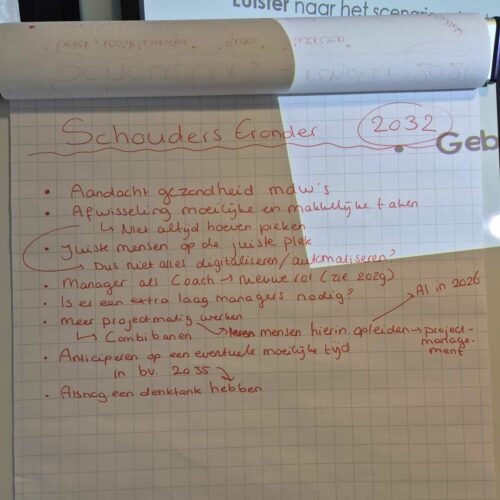 Luister naar het scenario
Schouders Eronder 2032
Geb
• Aandacht gezondheid mdw's
• Afwisseling moeilijke en makkelijke taken
↳ Niet altijd hoeven pieken
• Juiste mensen op de juiste plek
↳ Dus niet alles digitaliseren/automatiseren?
• Manager als Coach → nieuwe rol (zie 2029)
• Is er een extra laag managers nodig?
AI in 2026
• Meer projectmatig werken
↳ Combibanen
mensen hierin opleiden → project-
manage-
ment
• Anticiperen op een eventuele moeilijke tijd
in bv 2035
• Alsnog een denktank hebben